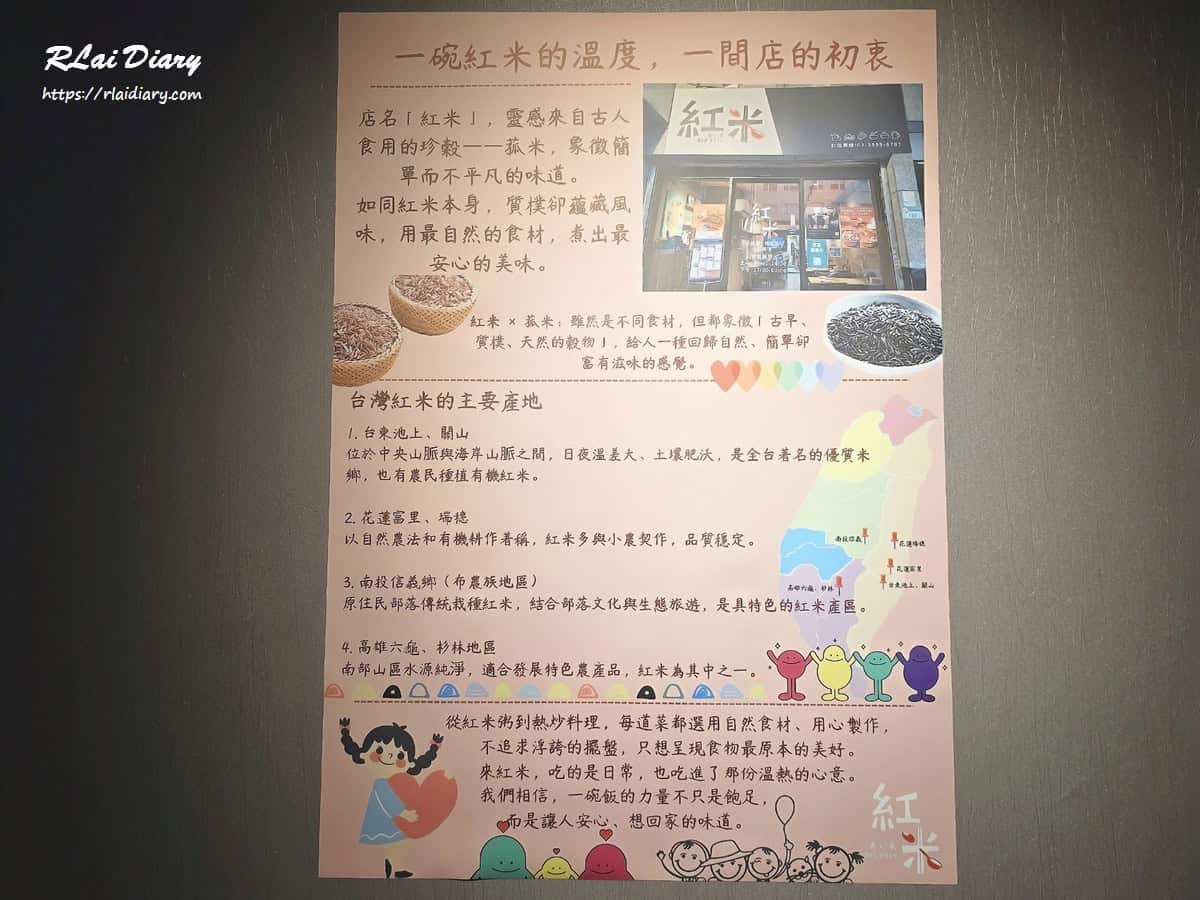 RLai Diary
https://rlaidiary.com
一碗紅米的溫度，一間店的初衷
店名「紅米」，靈感來自古人
食用的珍穀——菰米，象徵簡
單而不平凡的味道。
如同紅米本身，質樸卻蘊藏風
味，用最自然的食材，煮出最
安心的美味。
紅米
紅米
紅米 × 菰米：雖然是不同食材，但都象徵「古早、
質樸、天然的穀物」，給人一種回歸自然、簡單卻
富有滋味的感覺。
台灣紅米的主要產地
1. 台東池上、關山
位於中央山脈與海岸山脈之間，日夜溫差大、土壤肥沃，是全台著名的優質米
鄉，也有農民種植有機紅米。
2. 花蓮富里、瑞穗
以自然農法和有機耕作著稱，紅米多與小農契作，品質穩定。
3. 南投信義鄉（布農族地區）
原住民部落傳統栽種紅米，結合部落文化與生態旅遊，是具特色的紅米產區。
4. 高雄六龜、杉林地區
南部山區水源純淨，適合發展特色農產品，紅米為其中之一。
南投信義
花蓮瑞穗
花蓮富里
台東池上、關山
高雄六龜、杉林
從紅米粥到熱炒料理，每道菜都選用自然食材、用心製作，
不追求浮誇的擺盤，只想呈現食物最原本的美好。
來紅米，吃的是日常，也吃進了那份溫熱的心意。
我們相信，一碗飯的力量不只是飽足，
而是讓人安心、想回家的味道。
紅米